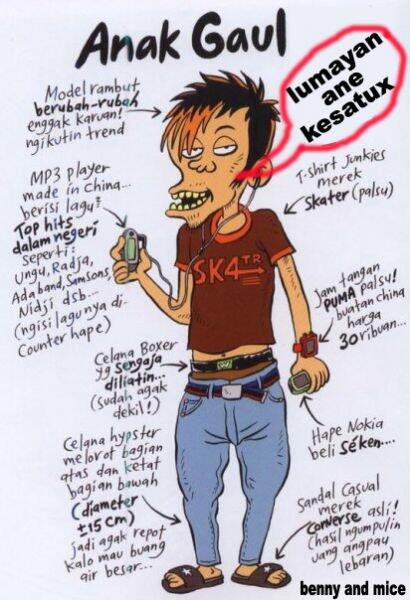 Anak Gaul
lumayan
ane
kesatux
Model rambut
berubah-rubah
enggak karuan!
ngikutin trend
MP3 player
made in China...
berisi lagu²
Top hits
dalam negeri
seperti:
Ungu, Radja,
Adaband, Samsons,
Nidji dsb...
(ngisi lagunya di-
Counter hape)
T-shirt Junkies
merek
Skater (palsu)
SK4TR
Jam tangan
PUMA palsu!
buatan china
harga
30 ribuan...
Celana Boxer
yg sengaja
diliatin...
(sudah agak
dekil!)
Hape Nokia
beli séken....
Celana hypster
melorot bagian
atas dan ketat
bagian bawah
(diameter
±15 cm)
jadi agak repot
kalo mau buang
air besar...
Sandal Casual
merek
Converse asli!
(hasil ngumpulin
uang angpau
lebaran)
benny and mice